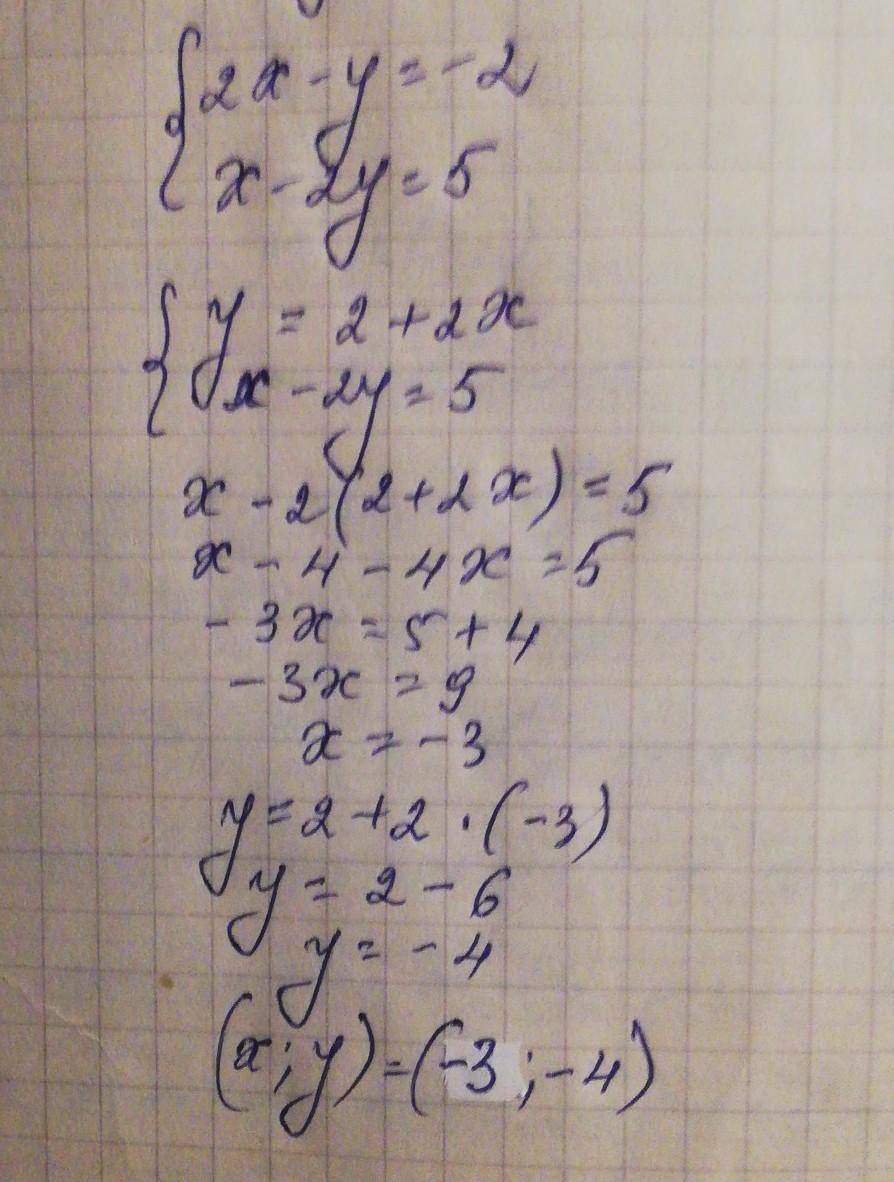 {2x - y = -2
x - 2y = 5
{y = 2 + 2x
x - 2y = 5
x - 2(2 + 2x) = 5
x - 4 - 4x = 5
- 3x = 5 + 4
- 3x = 9
x = - 3
y = 2 + 2 · (-3)
y = 2 - 6
y = - 4
(x; y) = (-3; -4)